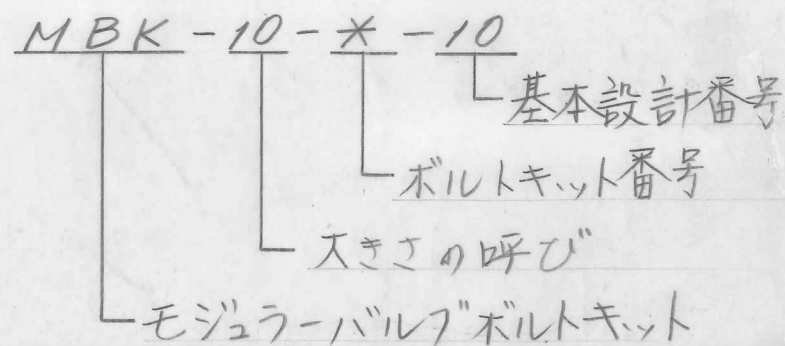 MBK-10-*-10
基本設計番号
ボルトキット番号
大きさの呼び
モジュラーバルブボルトキット